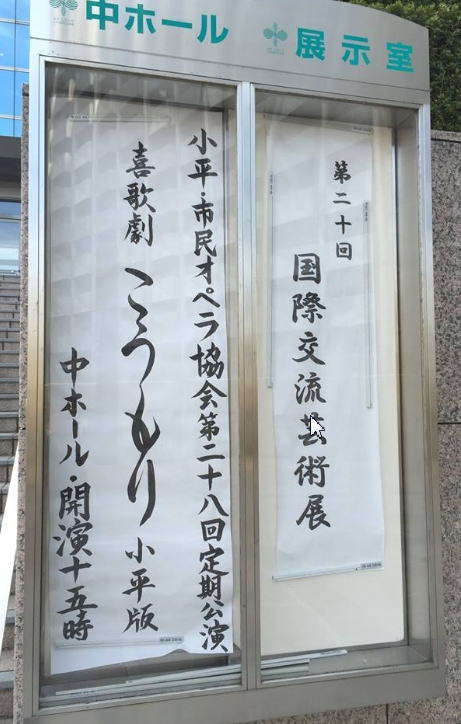 中ホール
展示室
小平・市民オペラ協会第二十八回定期公演
喜歌劇 こうもり 小平版
中ホール・開演十五時
第二十回
国際交流芸術展